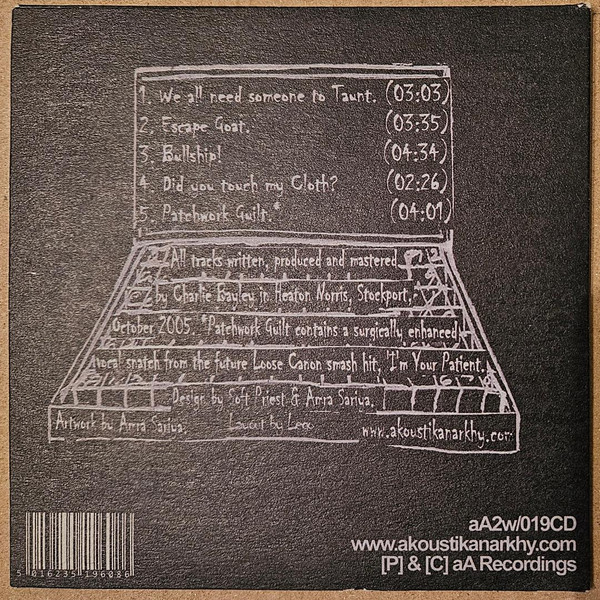 1. We all need someone to Taunt. (03:03)
2. Escape Goat. (03:35)
3. Bullship! (04:34)
4. Did you touch my Cloth? (02:26)
5. Patchwork Guilt.* (04:01)
All tracks written, produced and mastered
by Charlie Bayley in Heaton Norris, Stockport,
October 2005. *Patchwork Guilt contains a surgically enhanced
vocal snatch from the future Loose Canon smash hit, 'I'm Your Patient.
Design by Soft Priest & Amra Sariya,
Artwork by Amra Sariya, Layout by Leeo www.akoustikanarkhy.com
aA2w/019CD
www.akoustikanarkhy.com
[P] & [C] aA Recordings
5 016235 196086